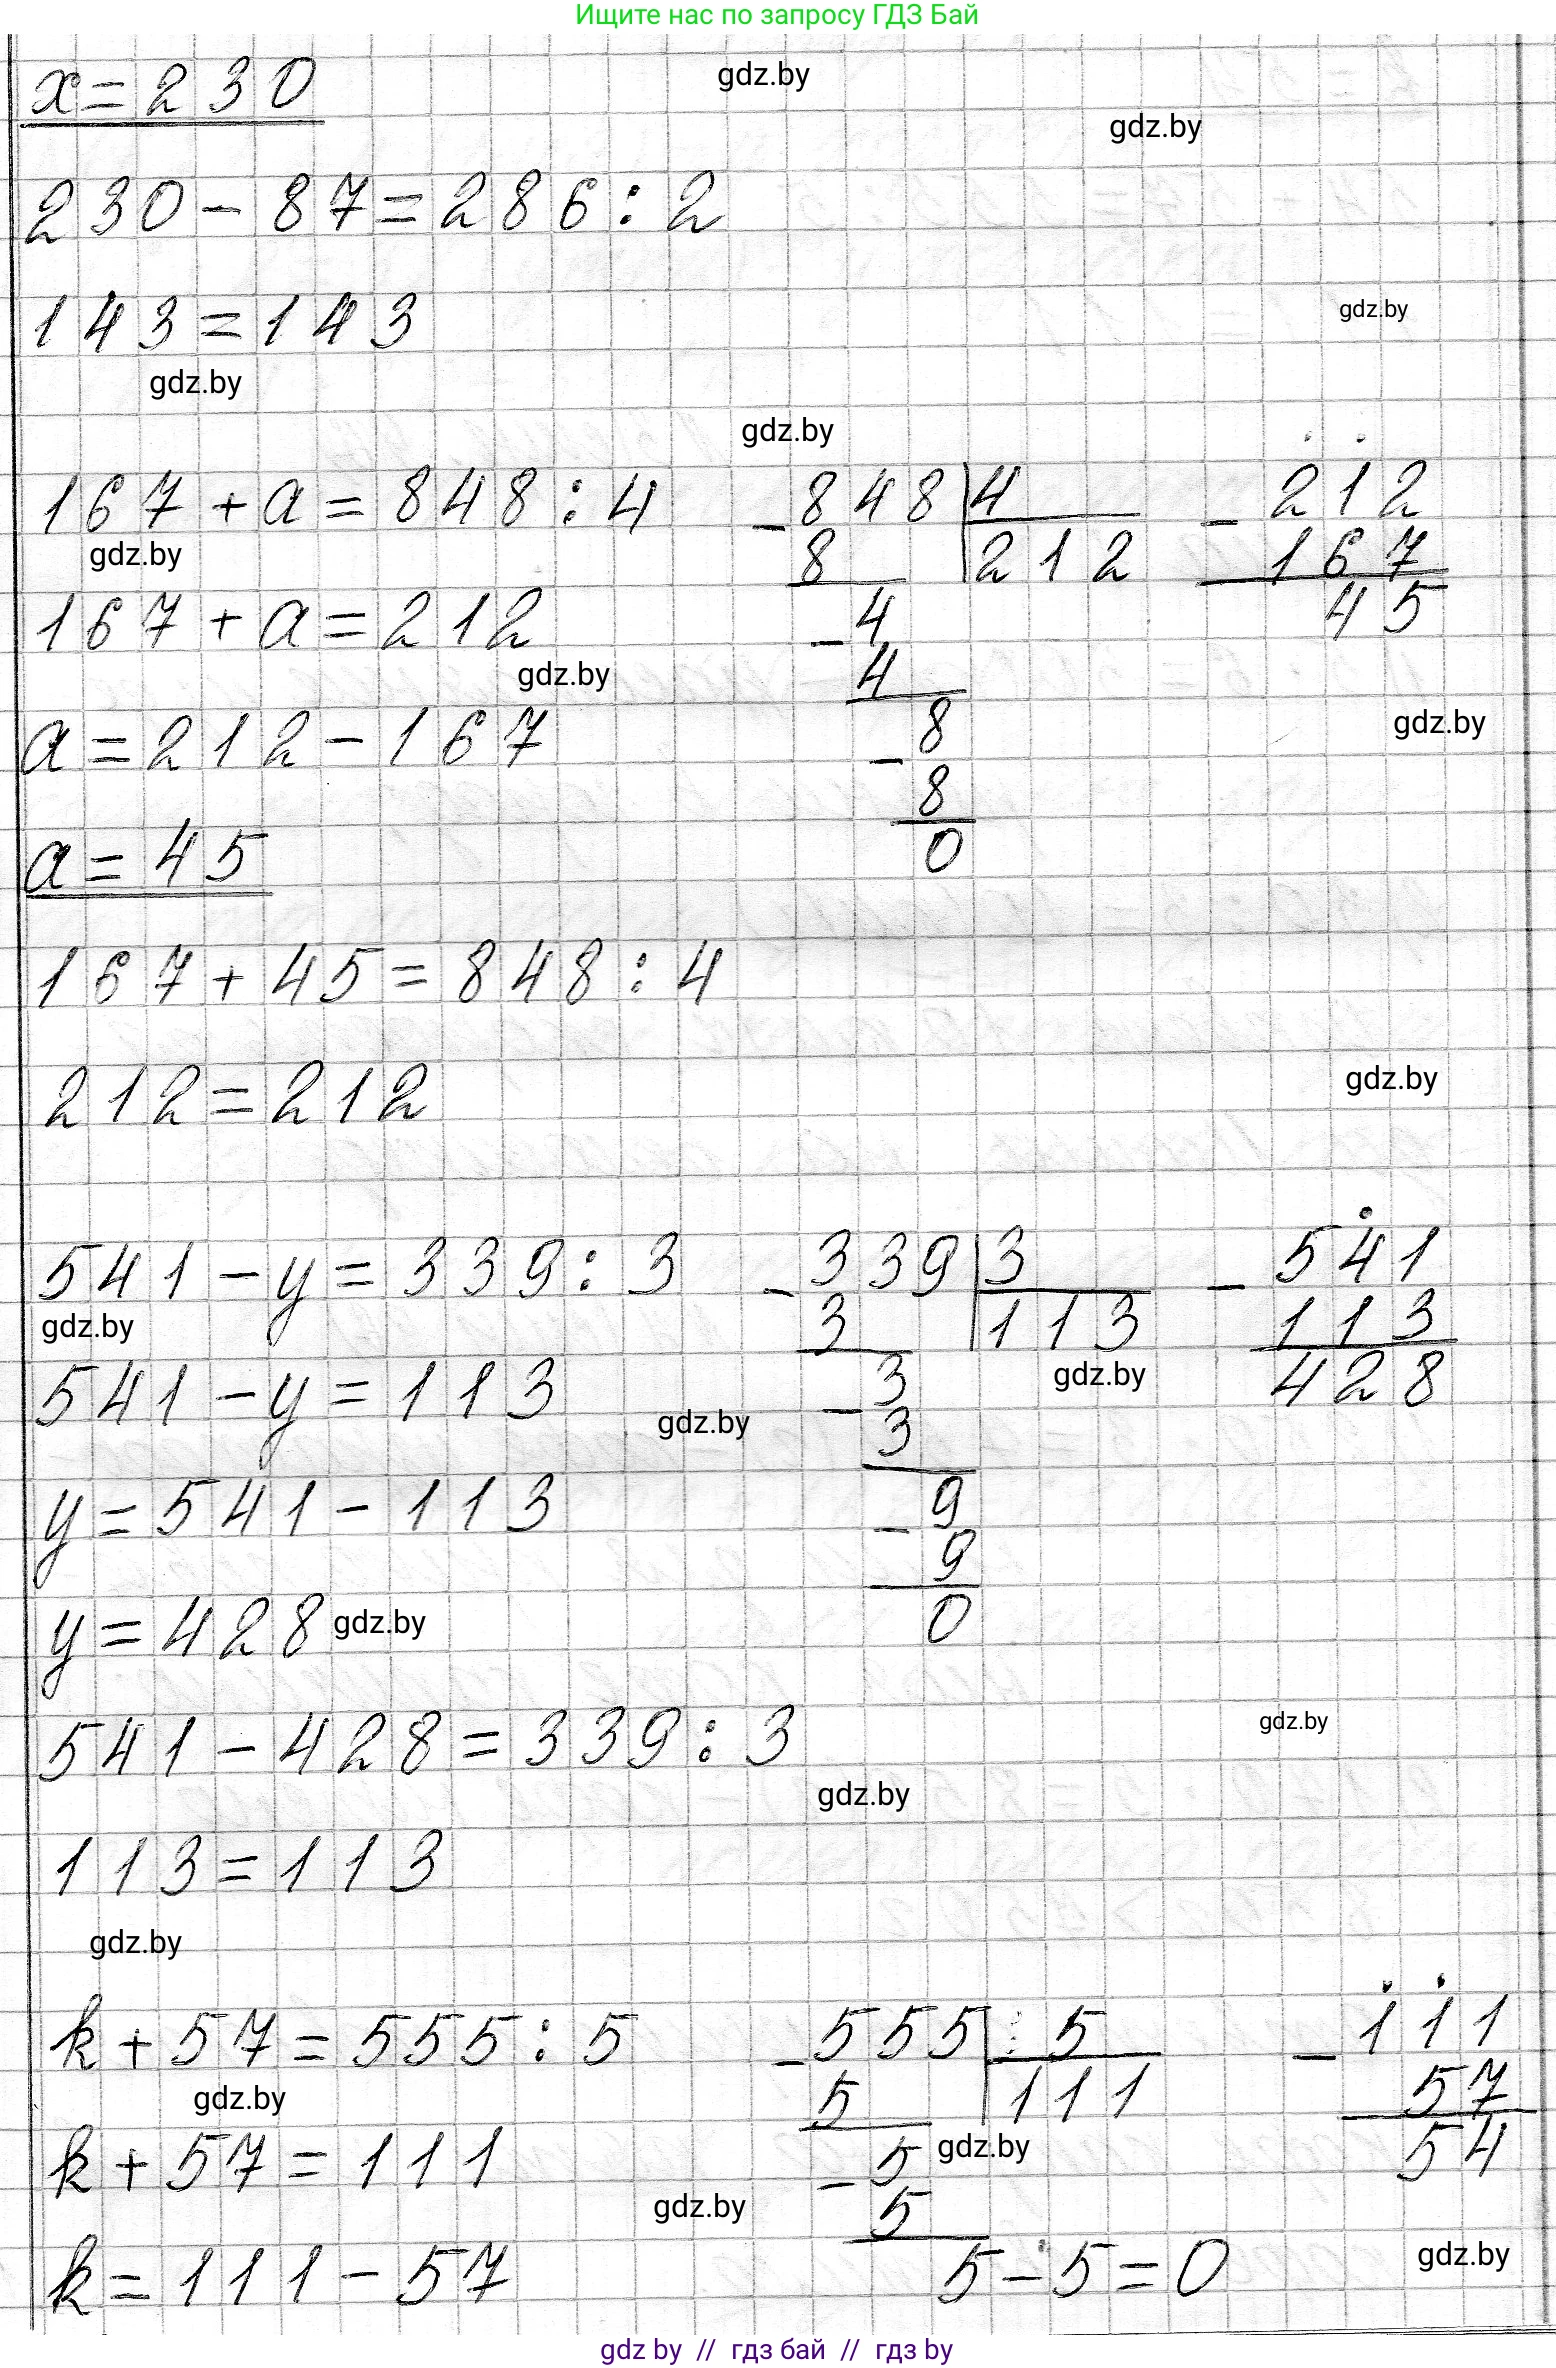 Ищите нас по запросу ГДЗ Бай
x=230
gdz.by
gdz.by
230-87=286:2
143=143
gdz.by
gdz.by
gdz.by
167+a=848:4
-848|4
-212
8
212
167
gdz.by
45
167+a=212
-4
4
gdz.by
a=212-167
8
gdz.by
-
8
0
a=45
167+45=848:4
212=212
gdz.by
541-y=339:3
-339|3
-541
3
113
113
gdz.by
428
541-y=113
-3
gdz.by
3
gdz.by
y=541-113
-9
9
0
y=428
gdz.by
541-428=339:3
gdz.by
gdz.by
113=113
gdz.by
k+57=555:5
-555|5
-111
5
111
57
gdz.by
54
k+57=111
-5
gdz.by
5
gdz.by
k=111-57
5-5=0
gdz.by
gdz by // гдз бай // гдз by